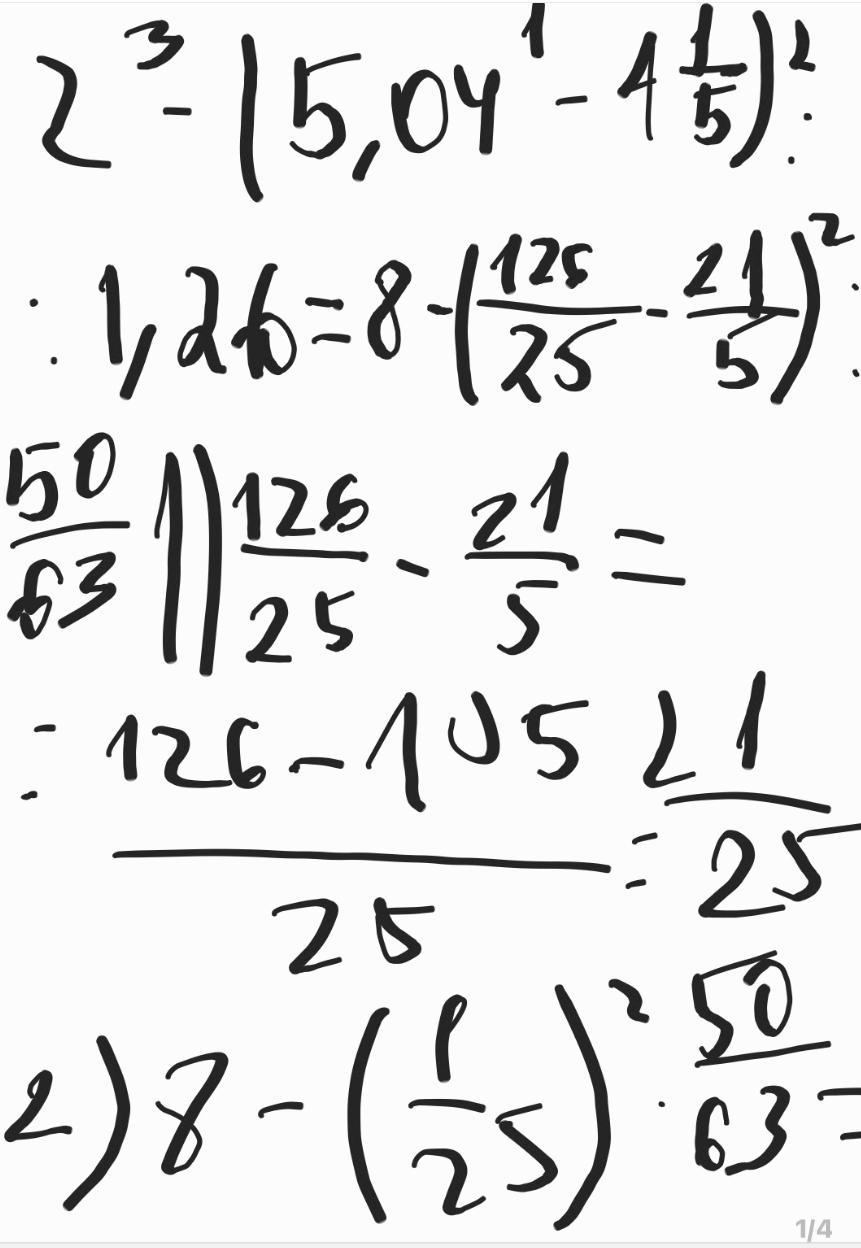 2³ - (5,04¹ - 4 1/5)² :
: 1,26 = 8 - (126/25 - 21/5)² :
50/63 1) 126/25 - 21/5 =
= (126 - 105)/25 = 21/25
2) 8 - (1/25)² · 50/63 =
1/4